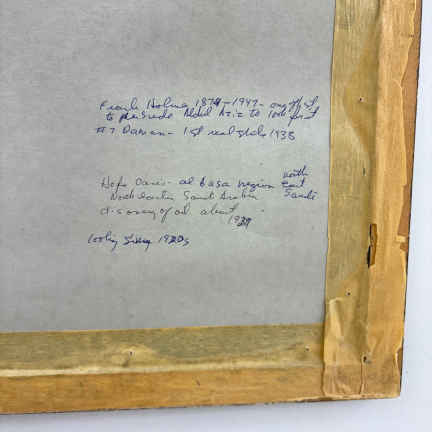 Frank Holmes 1874-1947- one of first
to persuade Abdul Aziz to look for it
#7 Damam- 1st real strike 1938
Hofu Oasis- al Hasa region north
East
Northeastern Saudi Arabia Saudi
discovery of oil about
1939
looking 1920s